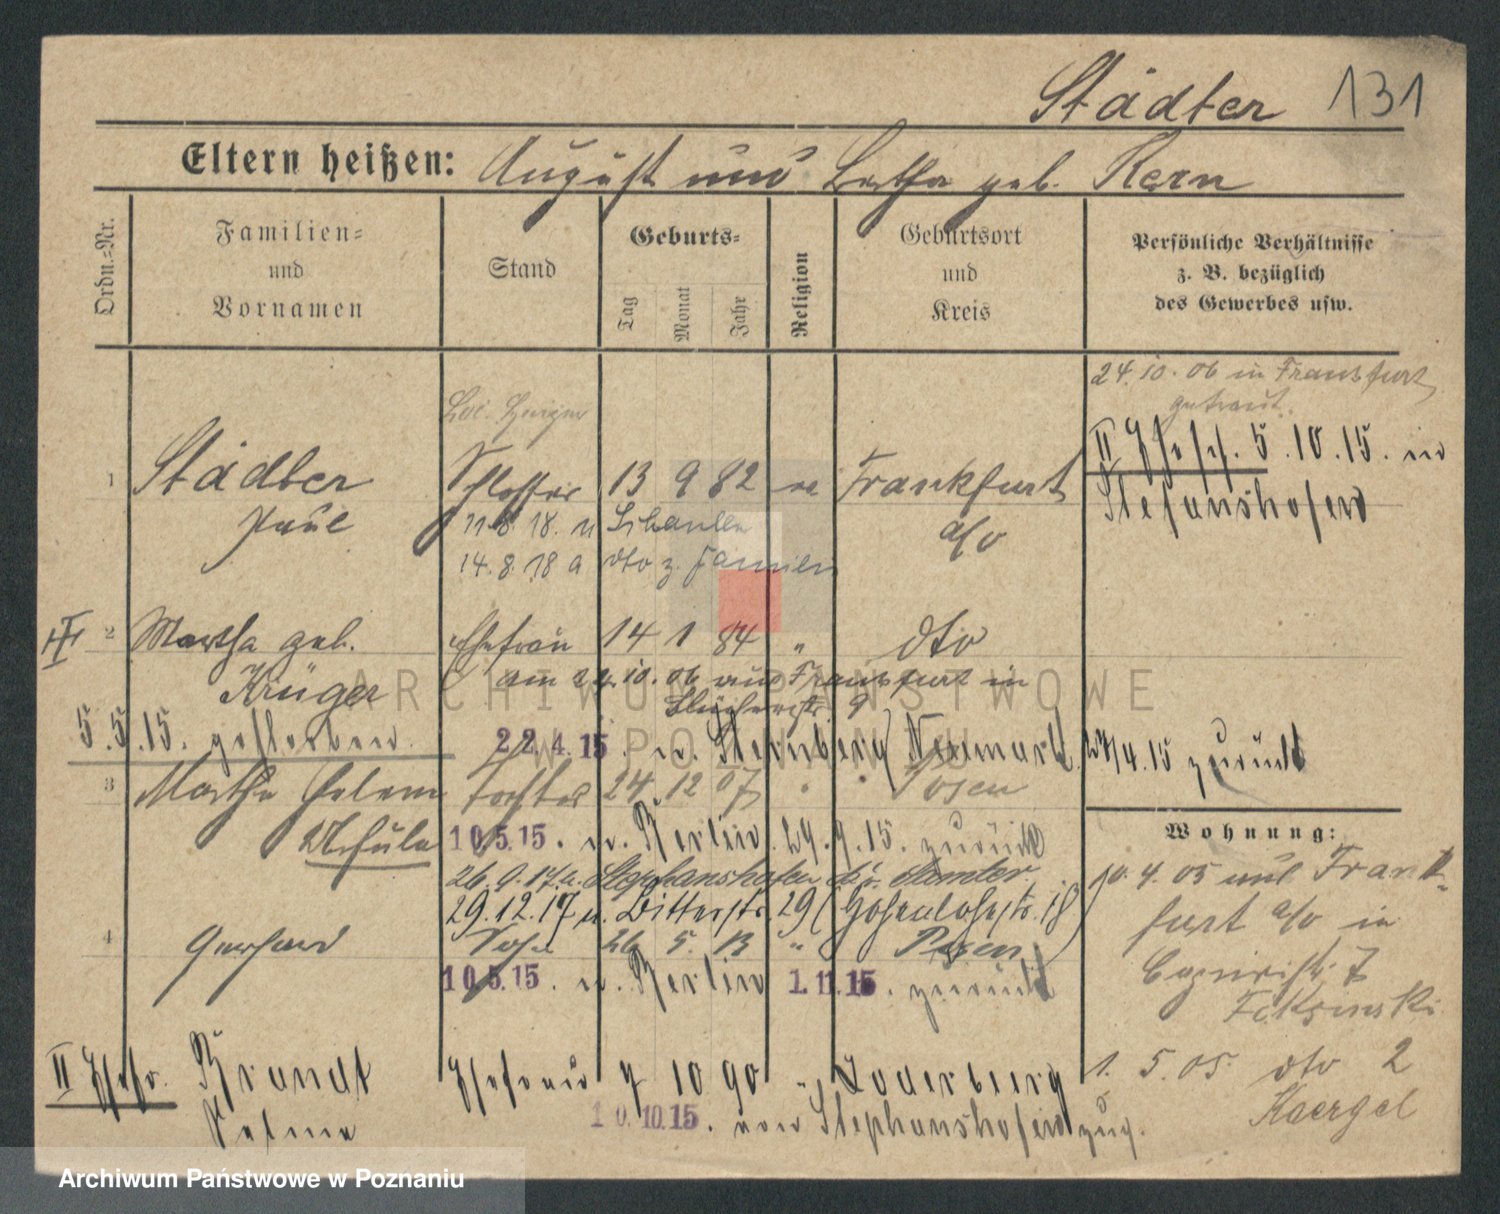 Städter 131
Eltern heißen: August und Bertha geb. Kern
Ordn.=Nr.
Familien=
und
Vornamen
Stand
Geburts=
Tag
Monat
Jahr
Religion
Geburtsort
und
Kreis
Persönliche Verhältnisse
z. B. bezüglich
des Gewerbes usw.
24. 10. 06 in Frankfurt
getraut.
II Ehesch. 5.10.15. in
Stefanshofen
1 Städter Schlosser 13 9 82 Frankfurt
Paul a/o
11.8.18. n
14.8.18 a dto z. Familie
2 Martha geb. Ehefrau 14 1 84 " dto
Krüger
am 24.10.06 aus Frankfurt in
9
5.5.15. gestorben. 22.4.15. n. Sternberg Neumark 27/4.15 zurück
3 Martha Helene Tochter 24 12 07 " Posen
Ursula 10.5.15. n. Berlin. 29.9.15. zurück
26.9.17 n. Stephanshofen Kr. Samter
29.12.17 n. Bitterstr. 29 (Hohenlohestr. 18)
4 Gerhard Sohn 26 5. 13 " Posen
10.5.15. n. Berlin 1.11.15. zurück
Wohnung:
10.4.05 aus Frank=
furt a/o in
7
1. 5.05. dto 2
Kaergel
II Ehefr. Brandt Ehefrau 7 10 90 "
Selma 10.10.15. von Stephanshofen zug.
ARCHIWUM PAŃSTWOWE
W POZNANIU
Archiwum Państwowe w Poznaniu